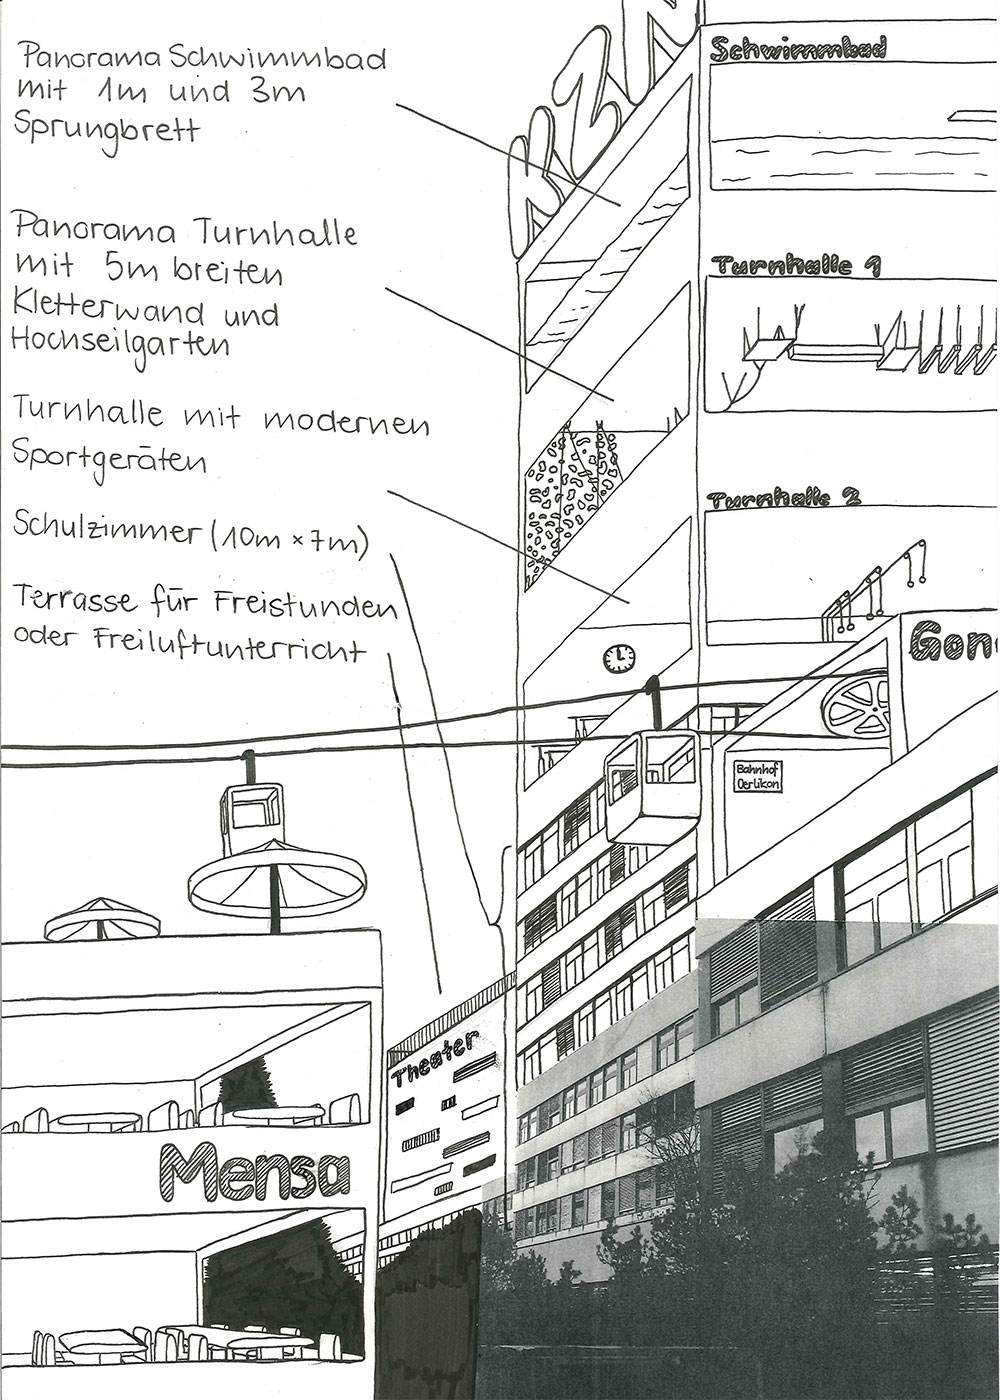 Panorama Schwimmbad
mit 1m und 3m
Sprungbrett
Panorama Turnhalle
mit 5m breiten
Kletterwand und
Hochseilgarten
Turnhalle mit modernen
Sportgeräten
Schulzimmer (10m × 7m)
Terrasse für Freistunden
oder Freiluftunterricht
KZN
Schwimmbad
Turnhalle 1
Turnhalle 2
Gon
Bahnhof
Oerlikon
Theater
Mensa